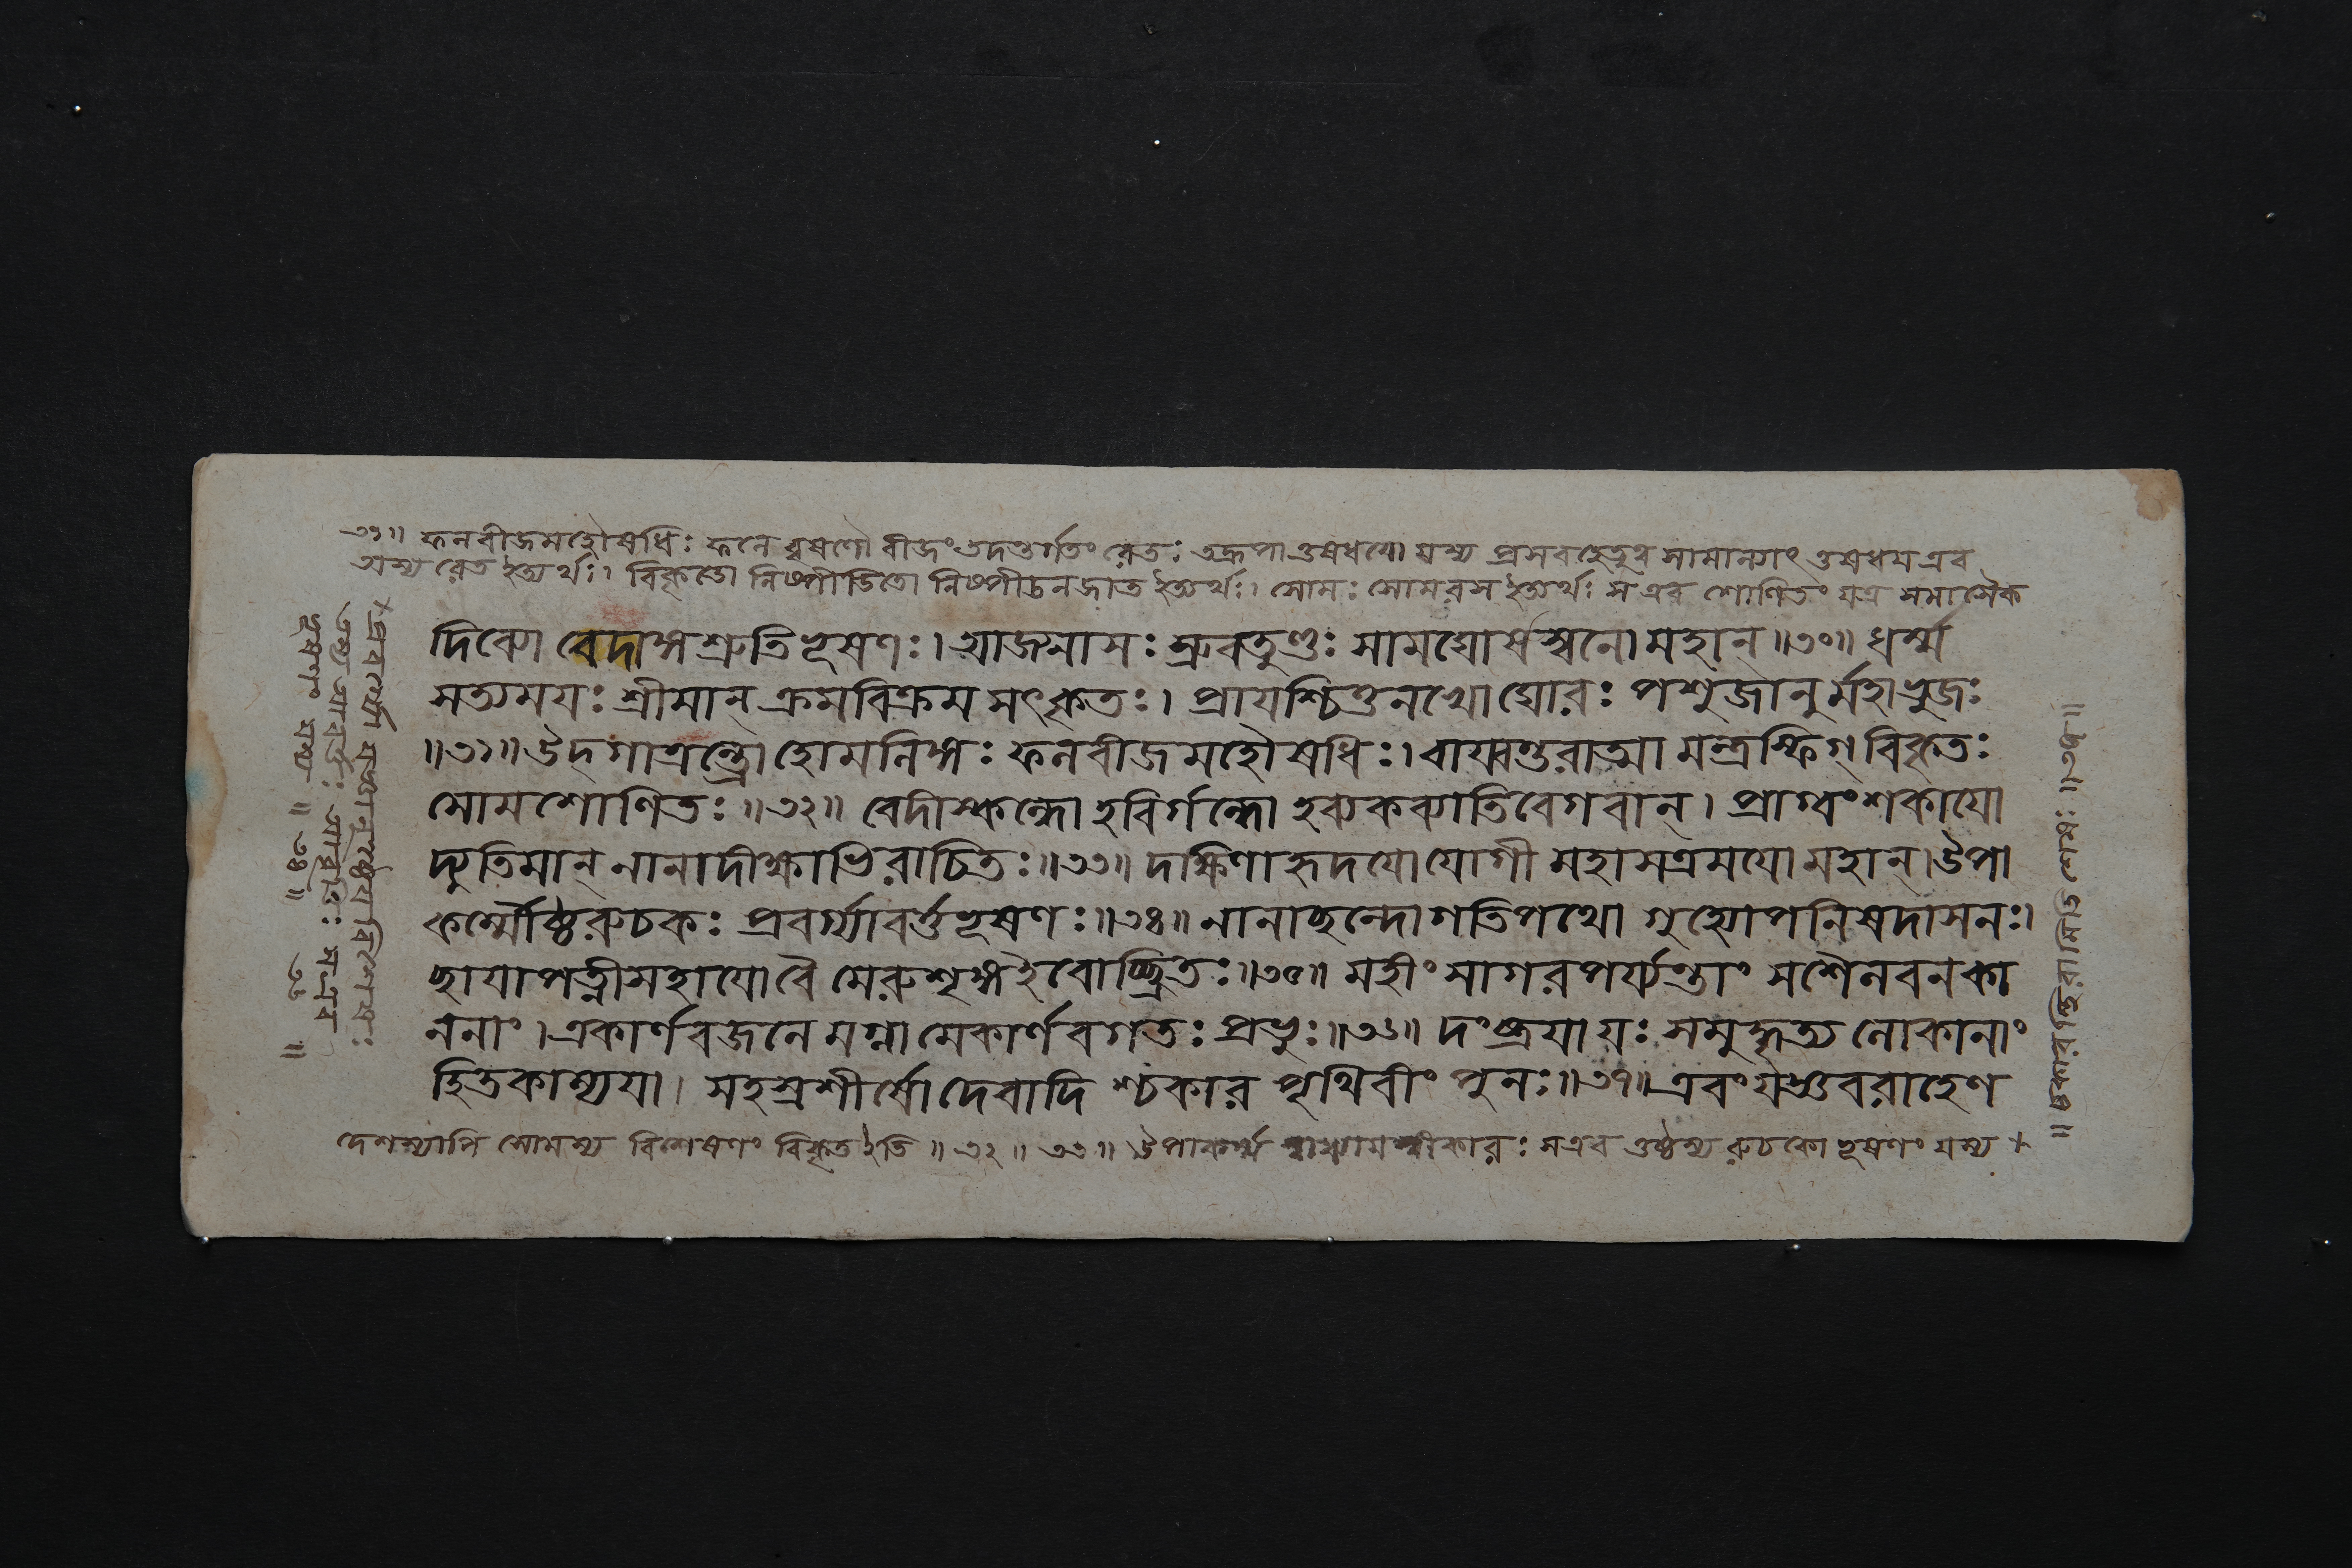 ৩১॥ ফলবীজমহৌষধিঃ ফলে বৃষণৌ বীজং তদন্তর্গতং রেতঃ তদ্রূপা ওষধযো যস্য প্রসবহেতুত্ব সামান্যাৎ ওষধয এব
অস্য রেত ইত্যর্থঃ। বিকৃতো নিষ্পীডিতো নিষ্পীডনজাত ইত্যর্থঃ। সোমঃ সোমরস ইত্যর্থঃ স এব শোণিতং যত্র সমাসৈক
দিব্যো বেদাঙ্গশ্রুতিভূষণঃ। আজ্যনাসঃ স্রুবতুণ্ডঃ সামঘোষস্বনো মহান্॥৩০॥ ধর্ম্ম
সত্যময়ঃ শ্রীমান্ ক্রমবিক্রম সৎকৃতঃ। প্রাযশ্চিত্তনখো ঘোরঃ পশুজানুর্মহাভুজঃ
॥৩১॥ উদ্গাত্রন্ত্রো হোমলিঙ্গঃ ফলবীজমহৌষধিঃ। বায্বন্তরাত্মা মন্ত্রস্ফিগ্ বিকৃতঃ
সোমশোণিতঃ॥৩২॥ বেদীস্কন্ধো হবির্গন্ধো হব্যকব্যাতিবেগবান্। প্রাগ্বংশকাযো
দ্যুতিমান্ নানাদীক্ষাভিরাচিতঃ॥৩৩॥ দক্ষিণাহৃদযো যোগী মহাসত্রমযো মহান্। উপা
কর্ম্মৌষ্ঠরুচকঃ প্রবর্গ্যাবর্ত্তভূষণঃ॥৩৪॥ নানাছন্দোগতিপথো গুহ্যোপনিষদাসনঃ।
ছাযাপত্নীসহাযো বৈ মেরুশৃঙ্গ ইবোচ্ছ্রিতঃ॥৩৫॥ মহীং সাগরপর্য্যন্তাং সশৈলবনকা
ননাং। একার্ণবজলে মগ্নামেকার্ণবগতঃ প্রভুঃ॥৩৬॥ দংষ্ট্রযা যঃ সমুদ্ধৃত্য লোকানাং
হিতকাম্যযা। সহস্রশীর্ষো দেবাদিশ্চকার পৃথিবীং পুনঃ॥৩৭॥ এবং যজ্ঞবরাহেণ
দেশস্যাপি সোমস্য বিশেষণং বিকৃত ইতি॥ ৩২॥ ৩৩॥ উপাকর্ম্ম কারঃ স এব ওষ্ঠস্য রুচকো ভূষণং যস্য ×
× প্রবর্গ্যো যজ্ঞানুষ্ঠেযবিশেষঃ
তস্য আবর্ত্তঃ আবৃত্তিঃ স এব ॥
ভূষণং যস্য ॥ ৩৪॥